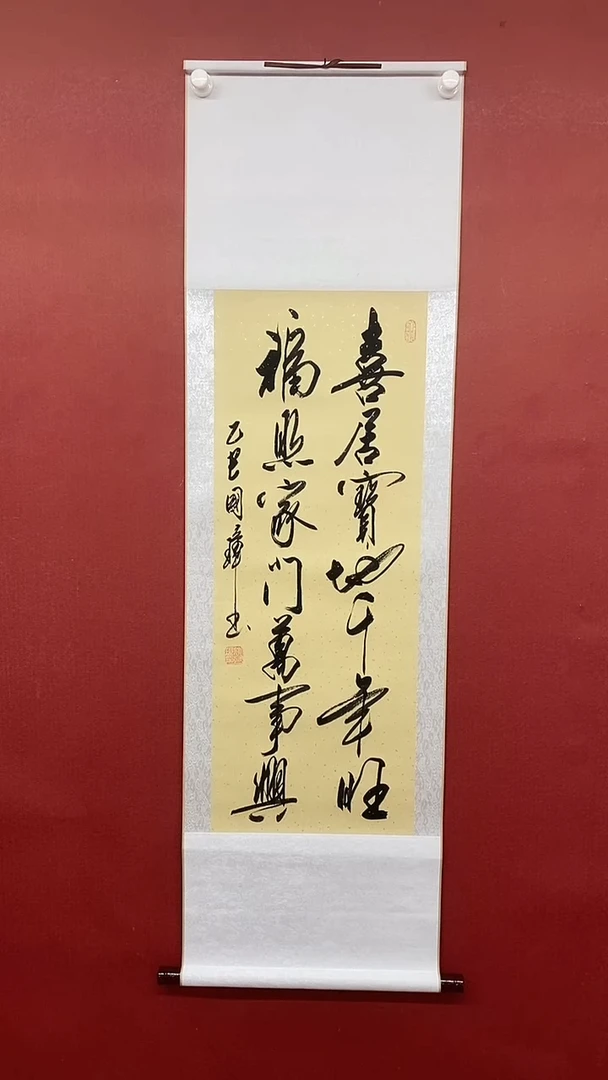 喜居寶地千年旺
福照家門萬事興
乙巳國瑋书